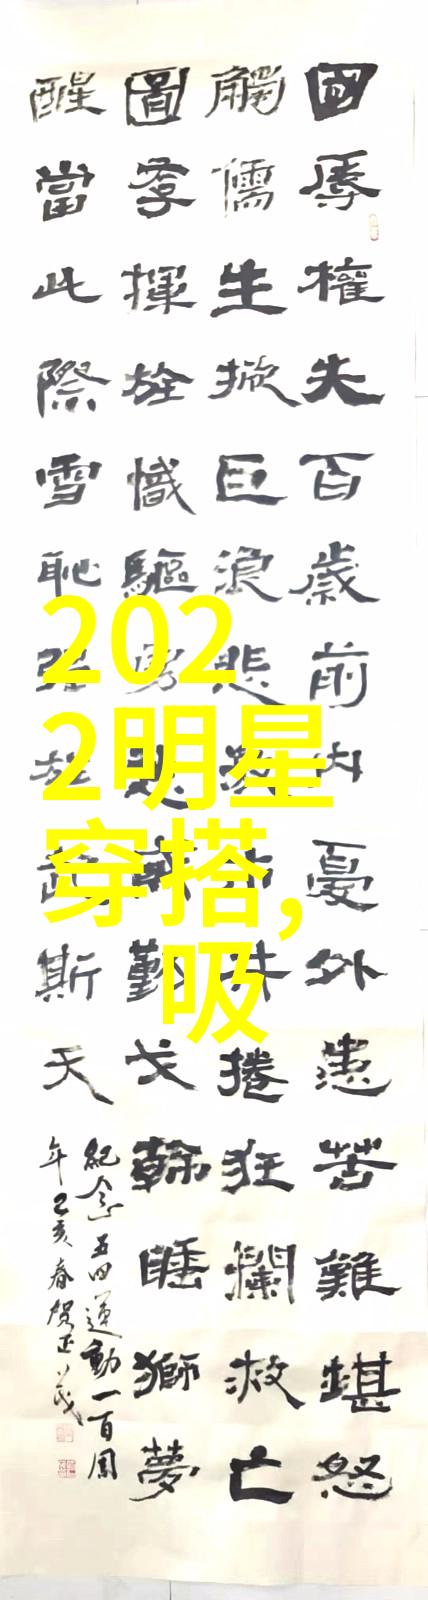 國辱權失百歲前内憂外患苦難堪怒
觸儒生掀巨浪悲捲狂瀾救亡
圖存揮旌幟驅勤戈翰睡獅夢
醒當此際雪恥武斯天
紀念五四運動一百周
年己亥春賀正
202
2明星
穿搭,
吸